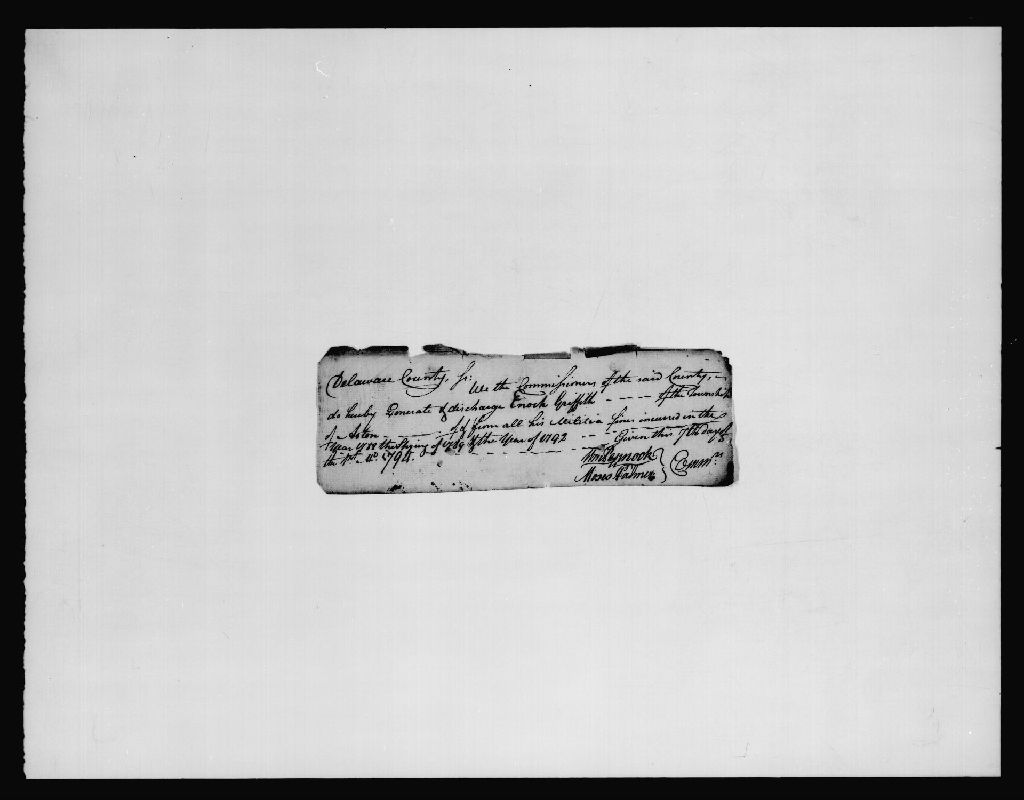 Delaware County, Ss: We the Commissioners of the said County,
do hereby Exonerate & discharge Enoch Griffith - - - - Of the Township
of Aston from all his Militia fines incurred in the
Year 1788 the Spring of 1789 & the Year of 1792 - - - Given this 7th day of
the 1st Mo. 1794.
Moses Palmer } Comrs.